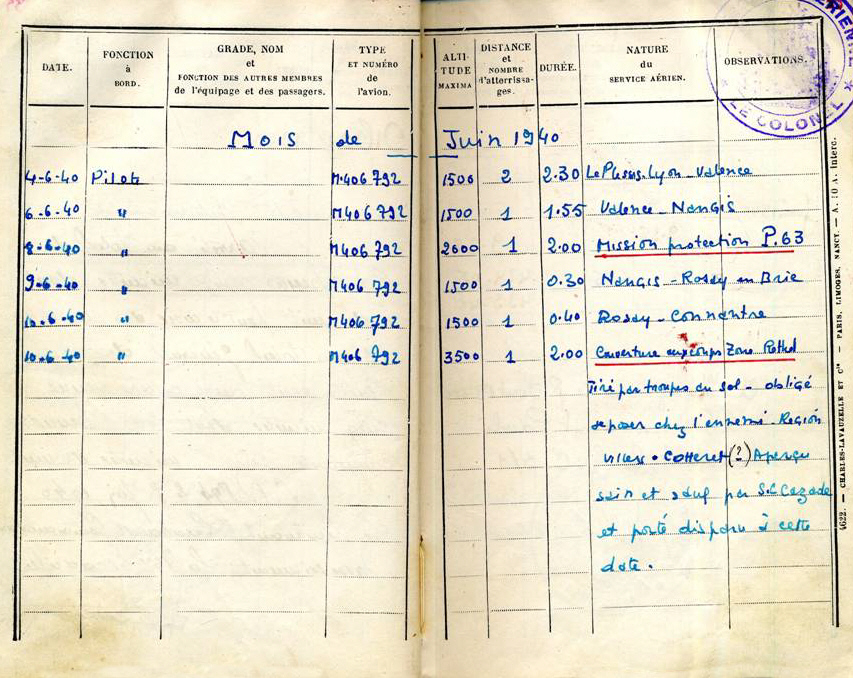 DATE. FONCTION à BORD. GRADE, NOM et FONCTION DES AUTRES MEMBRES de l'équipage et des passagers. TYPE ET NUMÉRO de l'avion. ALTITUDE MAXIMA DISTANCE et NOMBRE d'atterrissages. DURÉE. NATURE du SERVICE AÉRIEN. OBSERVATIONS.
LE COLONEL
Mois de Juin 1940
4-6-40 Pilote M.406 792 1500 2 2.30 Le Plessis. Lyon - Valence
6-6-40 " M406 792 1500 1 1.55 Valence - Nangis
8-6-40 " M406 792 2600 1 2.00 Mission protection P.63
9-6-40 " M406 792 1500 1 0.30 Nangis - Rosay en Brie
10-6-40 " M406 792 1500 1 0.40 Rosay - Connantre
10-6-40 " M406 792 3500 1 2.00 Couverture Zone
Tiré par troupes au sol - obligé
se poser chez l'ennemi - Région
Villers - Cotteret (?) Aperçu
sain et sauf par S.C Cazade
et porté disparu à cette
date.
4622. — CHARLES-LAVAUZELLE ET Cie — PARIS, LIMOGES, NANCY. — A. 10 A. Interc.